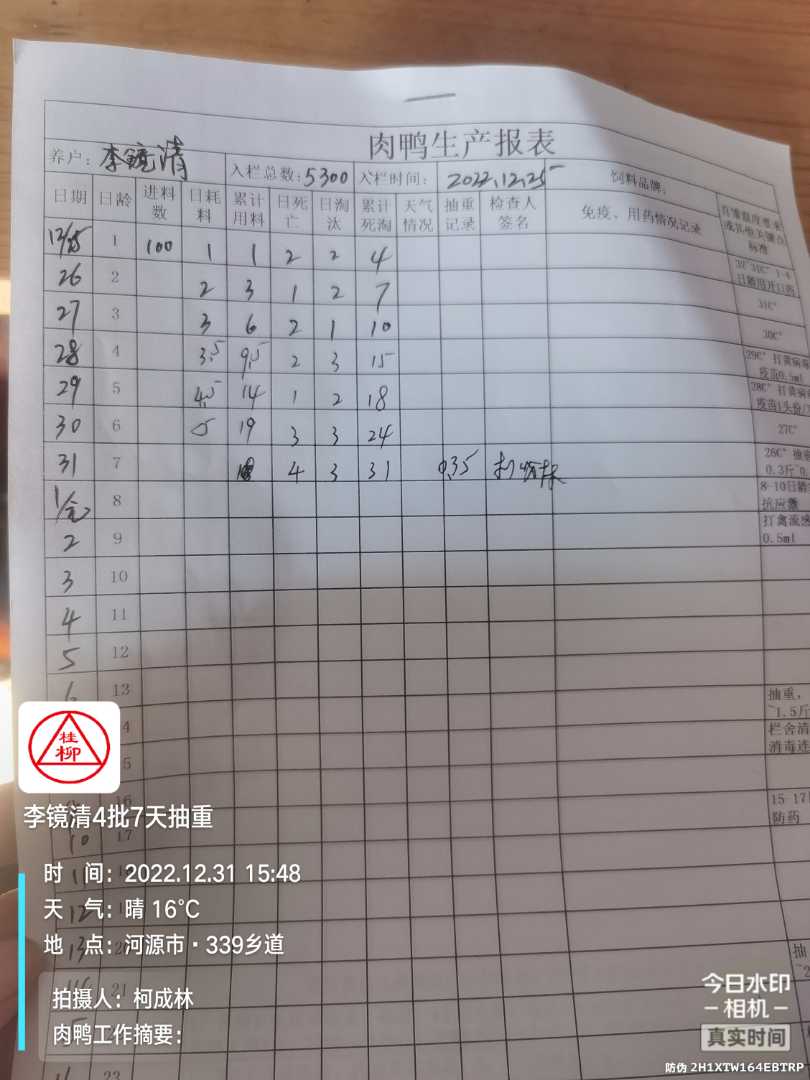 肉鸭生产报表
养户: 李镜清 入栏总数: 5300 入栏时间: 2022.12.25 饲料品牌:
日期 日龄 进料数 日耗料 累计用料 日死亡 日淘汰 累计死淘 天气情况 抽重记录 检查人签名 免疫、用药情况记录
12/25 1 100 1 1 2 2 4
26 2 2 3 1 2 7
31C°
27 3 3 6 2 1 10
30C°
28 4 3.5 9.5 2 3 15
29C° 打黄病毒
疫苗0.5ml
29 5 4.5 14 1 2 18
28C° 打黄病毒
30 6 5 19 3 3 24
27C°
31 7 4 3 31 0.35
26C° 抽重
1/元 8
8-10日龄
抗应激
2 9
打禽流感
0.5ml
3 10
4 11
5 12
6 13
抽重,
~1.5斤
4
栏舍清
消毒连
5
16
15-17
防药
10 17
桂柳
李镜清4批7天抽重
时 间: 2022.12.31 15:48
天 气: 晴 16°C
地 点: 河源市·339乡道
12
13 20
抽
21
拍摄人: 柯成林
肉鸭工作摘要:
23
今日水印
-相机-
真实时间
防伪 2H1XTW164EBTRP